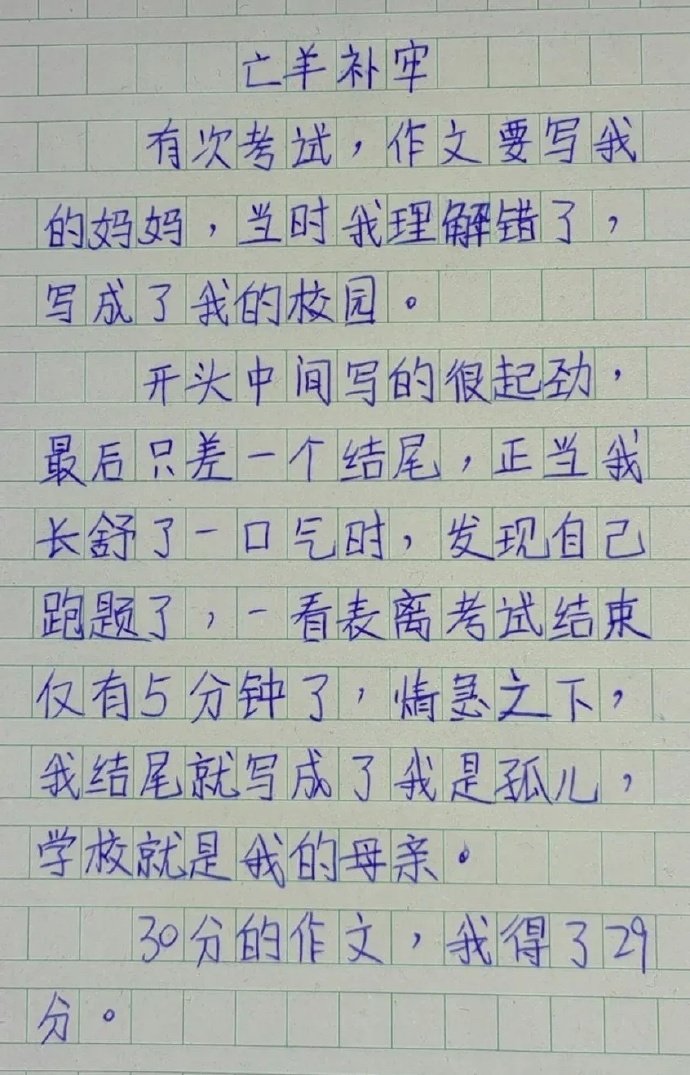 亡羊补牢
有次考试，作文要写我
的妈妈，当时我理解错了，
写成了我的校园。
开头中间写的很起劲，
最后只差一个结尾，正当我
长舒了一口气时，发现自己
跑题了，一看表离考试结束
仅有5分钟了，情急之下，
我结尾就写成了我是孤儿，
学校就是我的母亲。
30分的作文，我得了29
分。